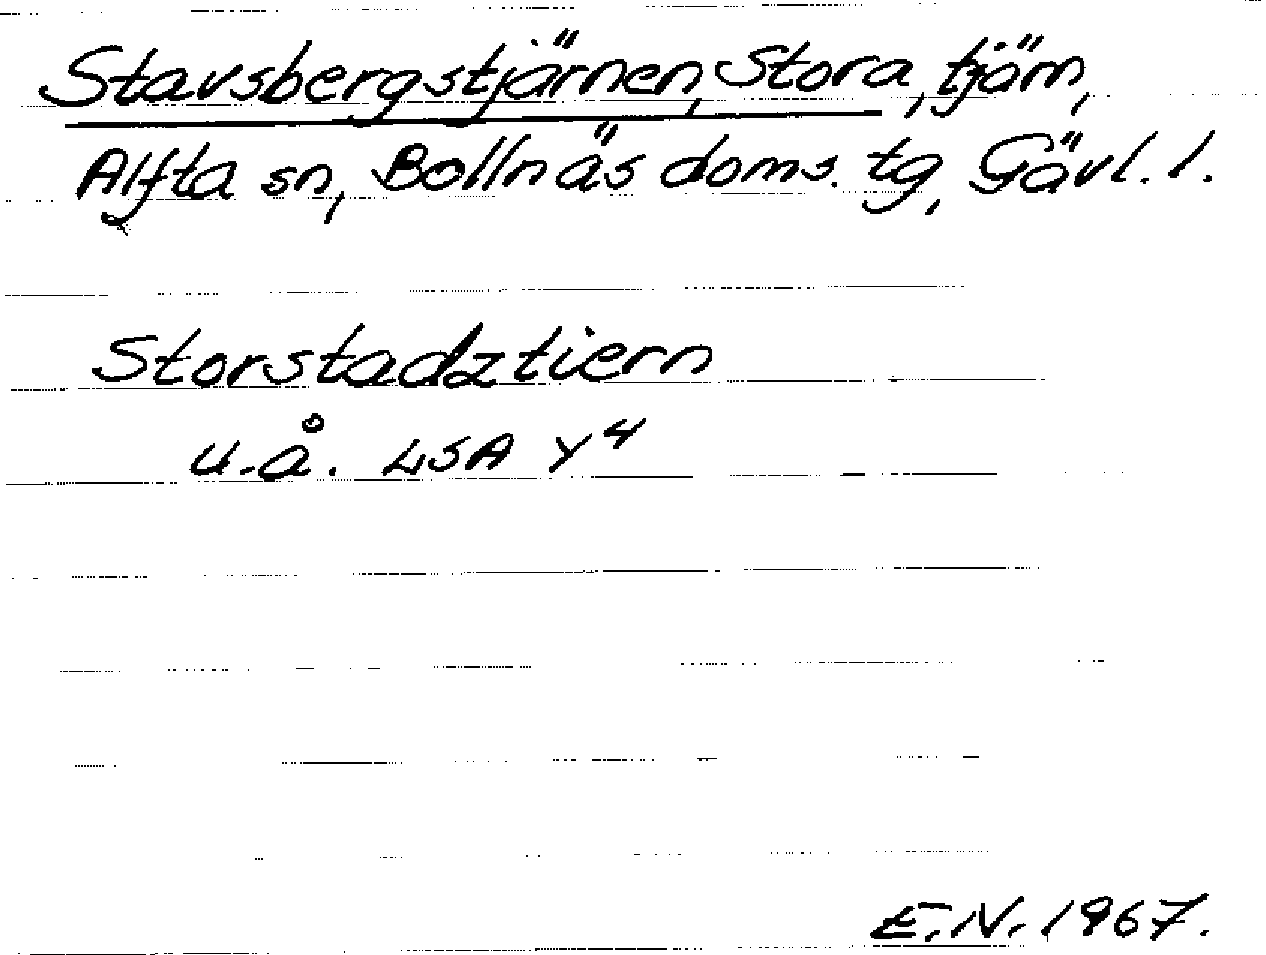 Stavsbergstjärnen, Stora, tjärn,
Alfta sn, Bollnäs doms. tg, Gävl. l.
Storstadztiern
u.å. LSA Y4
E.N. 1967.